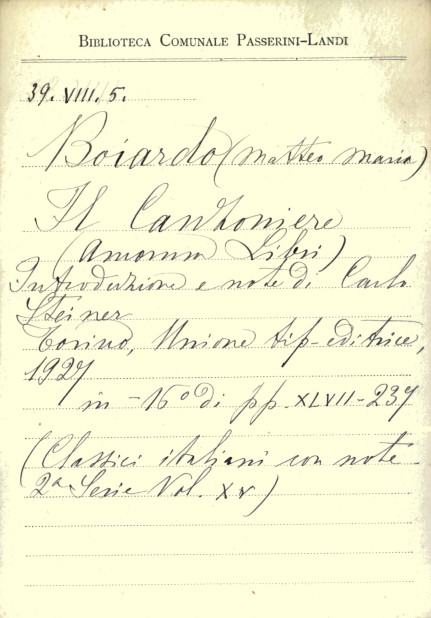 BIBLIOTECA COMUNALE PASSERINI-LANDI
39. VIII. 5.
Boiardo (Matteo Maria)
Il Canzoniere
(Amorum Libri)
Introduzione e note di Carlo
Steiner
Torino, Unione tip-editrice,
1927
in - 16° di pp. XLVII - 237
(Classici italiani con note -
2a Serie Vol. XV)